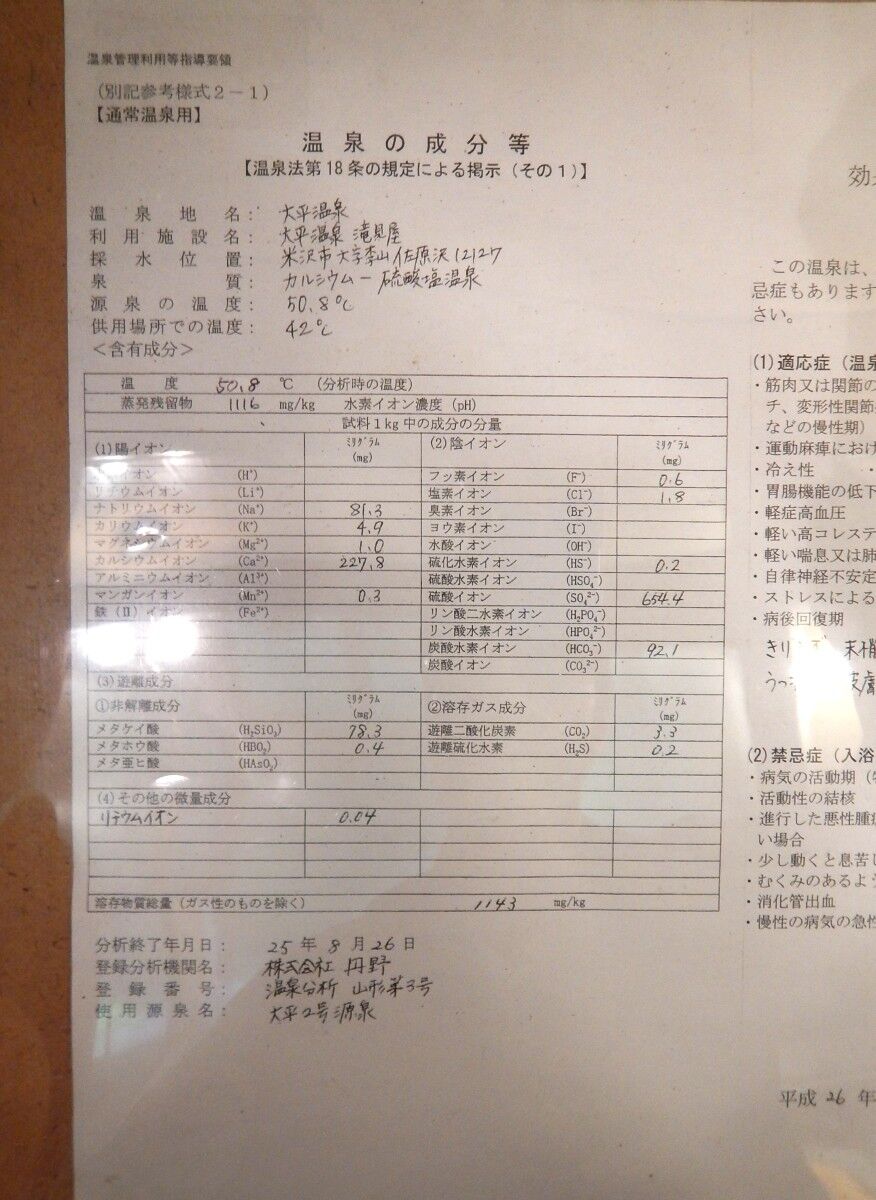 温泉管理利用等指導要領
(別記参考様式2-1)
【通常温泉用】
温泉の成分等
【温泉法第18条の規定による掲示(その1)】
温泉地名: 大平温泉
利用施設名: 大平温泉 滝見屋
採水位置: 米沢市大字李山佐原沢12127
泉質: カルシウムー硫酸塩温泉
源泉の温度: 50.8℃
供用場所での温度: 42℃
<含有成分>
温度 50.8 ℃ (分析時の温度)
蒸発残留物 1116 mg/kg 水素イオン濃度 (pH)
試料1kg中の成分の分量
(1)陽イオン ミリグラム (mg) (2)陰イオン ミリグラム (mg)
イオン (H⁺) フッ素イオン (F⁻) 0.6
リチウムイオン (Li⁺) 塩素イオン (Cl⁻) 1.8
ナトリウムイオン (Na⁺) 81.3 臭素イオン (Br⁻)
カリウムイオン (K⁺) 4.9 ヨウ素イオン (I⁻)
マグネシウムイオン (Mg²⁺) 1.0 水酸イオン (OH⁻)
カルシウムイオン (Ca²⁺) 227.8 硫化水素イオン (HS⁻) 0.2
アルミニウムイオン (Al³⁺) 硫酸水素イオン (HSO₄⁻)
マンガンイオン (Mn²⁺) 0.3 硫酸イオン (SO₄²⁻) 654.4
鉄(Ⅱ)イオン (Fe²⁺) リン酸二水素イオン (H₂PO₄⁻)
リン酸水素イオン (HPO₄²⁻)
炭酸水素イオン (HCO₃⁻) 92.1
炭酸イオン (CO₃²⁻)
(3)遊離成分
①非解離成分 ミリグラム (mg) ②溶存ガス成分 ミリグラム (mg)
メタケイ酸 (H₂SiO₃) 78.3 遊離二酸化炭素 (CO₂) 3.3
メタホウ酸 (HBO₂) 0.4 遊離硫化水素 (H₂S) 0.2
メタ亜ヒ酸 (HAsO₂)
(4)その他の微量成分
リチウムイオン 0.04
溶存物質総量(ガス性のものを除く) 1143 mg/kg
分析終了年月日: 25年8月26日
登録分析機関名: 株式会社 丹野
登録番号: 温泉分析 山形第3号
使用源泉名: 大平2号源泉
効
この温泉は、
忌症もあります
さい。
(1)適応症(温泉
・筋肉又は関節の
チ、変形性関節
などの慢性期)
・運動麻痺におけ
・冷え性 ・
・胃腸機能の低下
・軽症高血圧
・軽い高コレステ
・軽い喘息又は肺
・自律神経不安定
・ストレスによる
・病後回復期
きり 末梢
うつ 皮膚
(2)禁忌症(入浴
・病気の活動期(
・活動性の結核
・進行した悪性腫
い場合
・少し動くと息苦し
・むくみのあるよう
・消化管出血
・慢性の病気の急性
平成26年